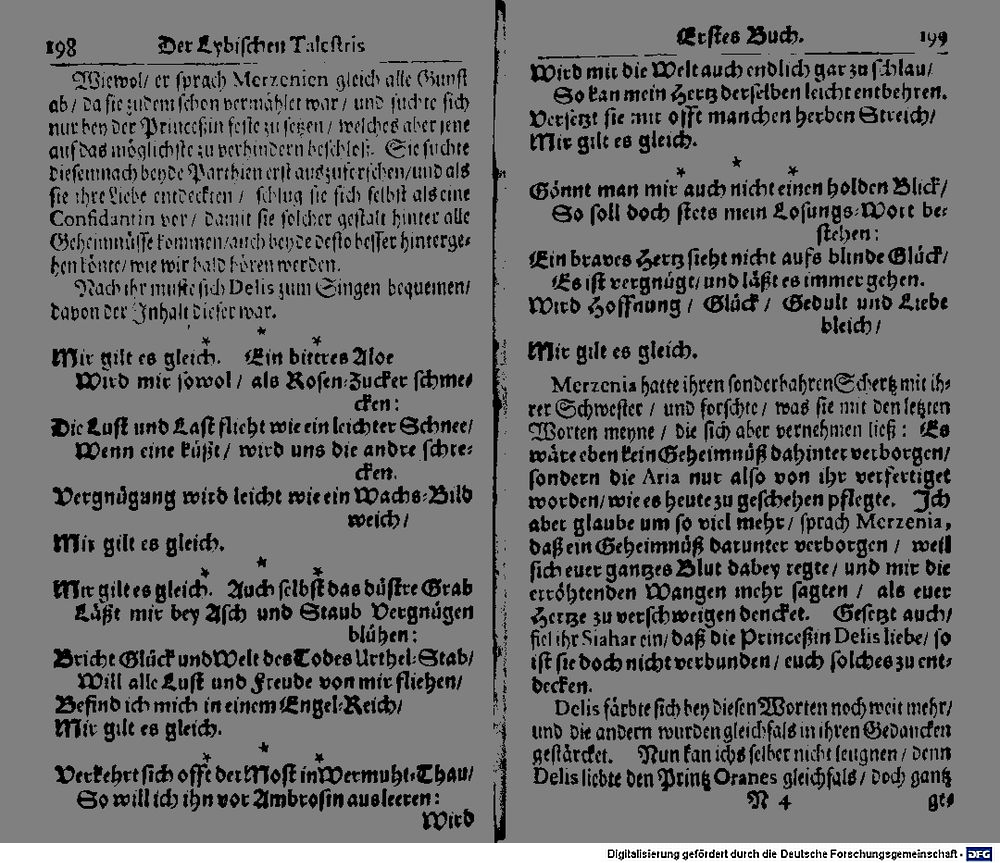 198 Der Lybischen Talestris
Wiewol/ er sprach Merzenien gleich alle Gunst
ab/ da sie zudem schon vermählet war/ und suchte sich
nur bey der Princeßin feste zu setzen/ welches aber jene
auf das möglichste zu verhindern beschloß. Sie suchte
diesemnach beyde Parthien erst auszuforschen/und als
sie ihre Liebe entdeckten/ schlug sie sich selbst als eine
Confidantin vor/ damit sie solcher gestalt hinter alle
Geheimnüsse kommen/auch beyde desto besser hinterge-
hen könte/ wie wir bald hören werden.
Nach ihr muste sich Delis zum Singen bequemen/
davon der Inhalt dieser war.
* * *
Mir gilt es gleich. Ein bittres Aloe
Wird mir sowol/ als Rosen-Zucker schme-
cken:
Die Lust und Last flieht wie ein leichter Schnee/
Wenn eine küßt/ wird uns die andre schre-
cken.
Vergnügung wird leicht wie ein Wachs-Bild
weich/
Mir gilt es gleich.
* * *
Mir gilt es gleich. Auch selbst das düstre Grab
Läßt mir bey Asch und Staub Vergnügen
blühen:
Bricht Glück und Welt des Todes Urthel-Stab/
Will alle Lust und Freude von mir fliehen/
Befind ich mich in einem Engel-Reich/
Mir gilt es gleich.
* * *
Verkehrt sich offt der Most in Wermuht-Thau/
So will ich ihn vor Ambrosin ausleeren:
Wird
Erstes Buch. 199
Wird mir die Welt auch endlich gar zu schlau/
So kan mein Hertz derselben leicht entbehren.
Versetzt sie mir offt manchen herben Streich/
Mir gilt es gleich.
* * *
Gönnt man mir auch nicht einen holden Blick/
So soll doch stets mein Losungs-Wort be-
stehen:
Ein braves Hertz sieht nicht aufs blinde Glück/
Es ist vergnügt/ und läßt es immer gehen.
Wird Hoffnung/ Glück/ Gedult und Liebe
bleich/
Mir gilt es gleich.
Merzenia hatte ihren sonderbahren Schertz mit ih-
rer Schwester/ und forschte/ was sie mit den letzten
Worten meyne/ die sich aber vernehmen ließ: Es
wäre eben kein Geheimnüß dahinter verborgen/
sondern die Aria nur also von ihr verfertiget
worden/ wie es heute zu geschehen pflegte. Ich
aber glaube um so viel mehr/ sprach Merzenia,
daß ein Geheimnüß darunter verborgen/ weil
sich euer gantzes Blut dabey regte/ und mir die
erröhtenden Wangen mehr sagten/ als euer
Hertze zu verschweigen dencket. Gesetzt auch/
fiel ihr Siahar ein/ daß die Princeßin Delis liebe/ so
ist sie doch nicht verbunden/ euch solches zu ent-
decken.
Delis färbte sich bey diesen Worten noch weit mehr/
und die andern wurden gleichfals in ihren Gedancken
gestärcket. Nun kan ichs selber nicht leugnen/ denn
Delis liebte den Printz Oranes gleichfals/ doch gantz
N 4 ge-
Digitalisierung gefördert durch die Deutsche Forschungsgemeinschaft - DFG